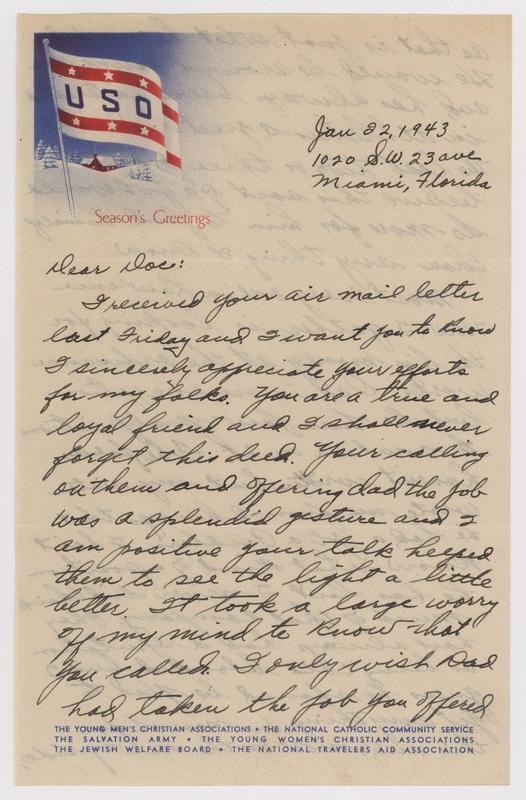 USO
Season's Greetings
Jan 22, 1943
1020 S.W. 23 ave
Miami, Florida
Dear Doc:
I received your air mail letter
last Friday and I want you to know
I sincerely appreciate your efforts
for my folks. You are a true and
loyal friend and I shall never
forget this deed. Your calling
on them and offering dad the job
was a splendid gesture and I
am positive your talk helped
them to see the light a little
better. It took a large worry
off my mind to know that
you called. I only wish Dad
had taken the job you offered
THE YOUNG MEN'S CHRISTIAN ASSOCIATIONS • THE NATIONAL CATHOLIC COMMUNITY SERVICE
THE SALVATION ARMY • THE YOUNG WOMEN'S CHRISTIAN ASSOCIATIONS
THE JEWISH WELFARE BOARD • THE NATIONAL TRAVELERS AID ASSOCIATION